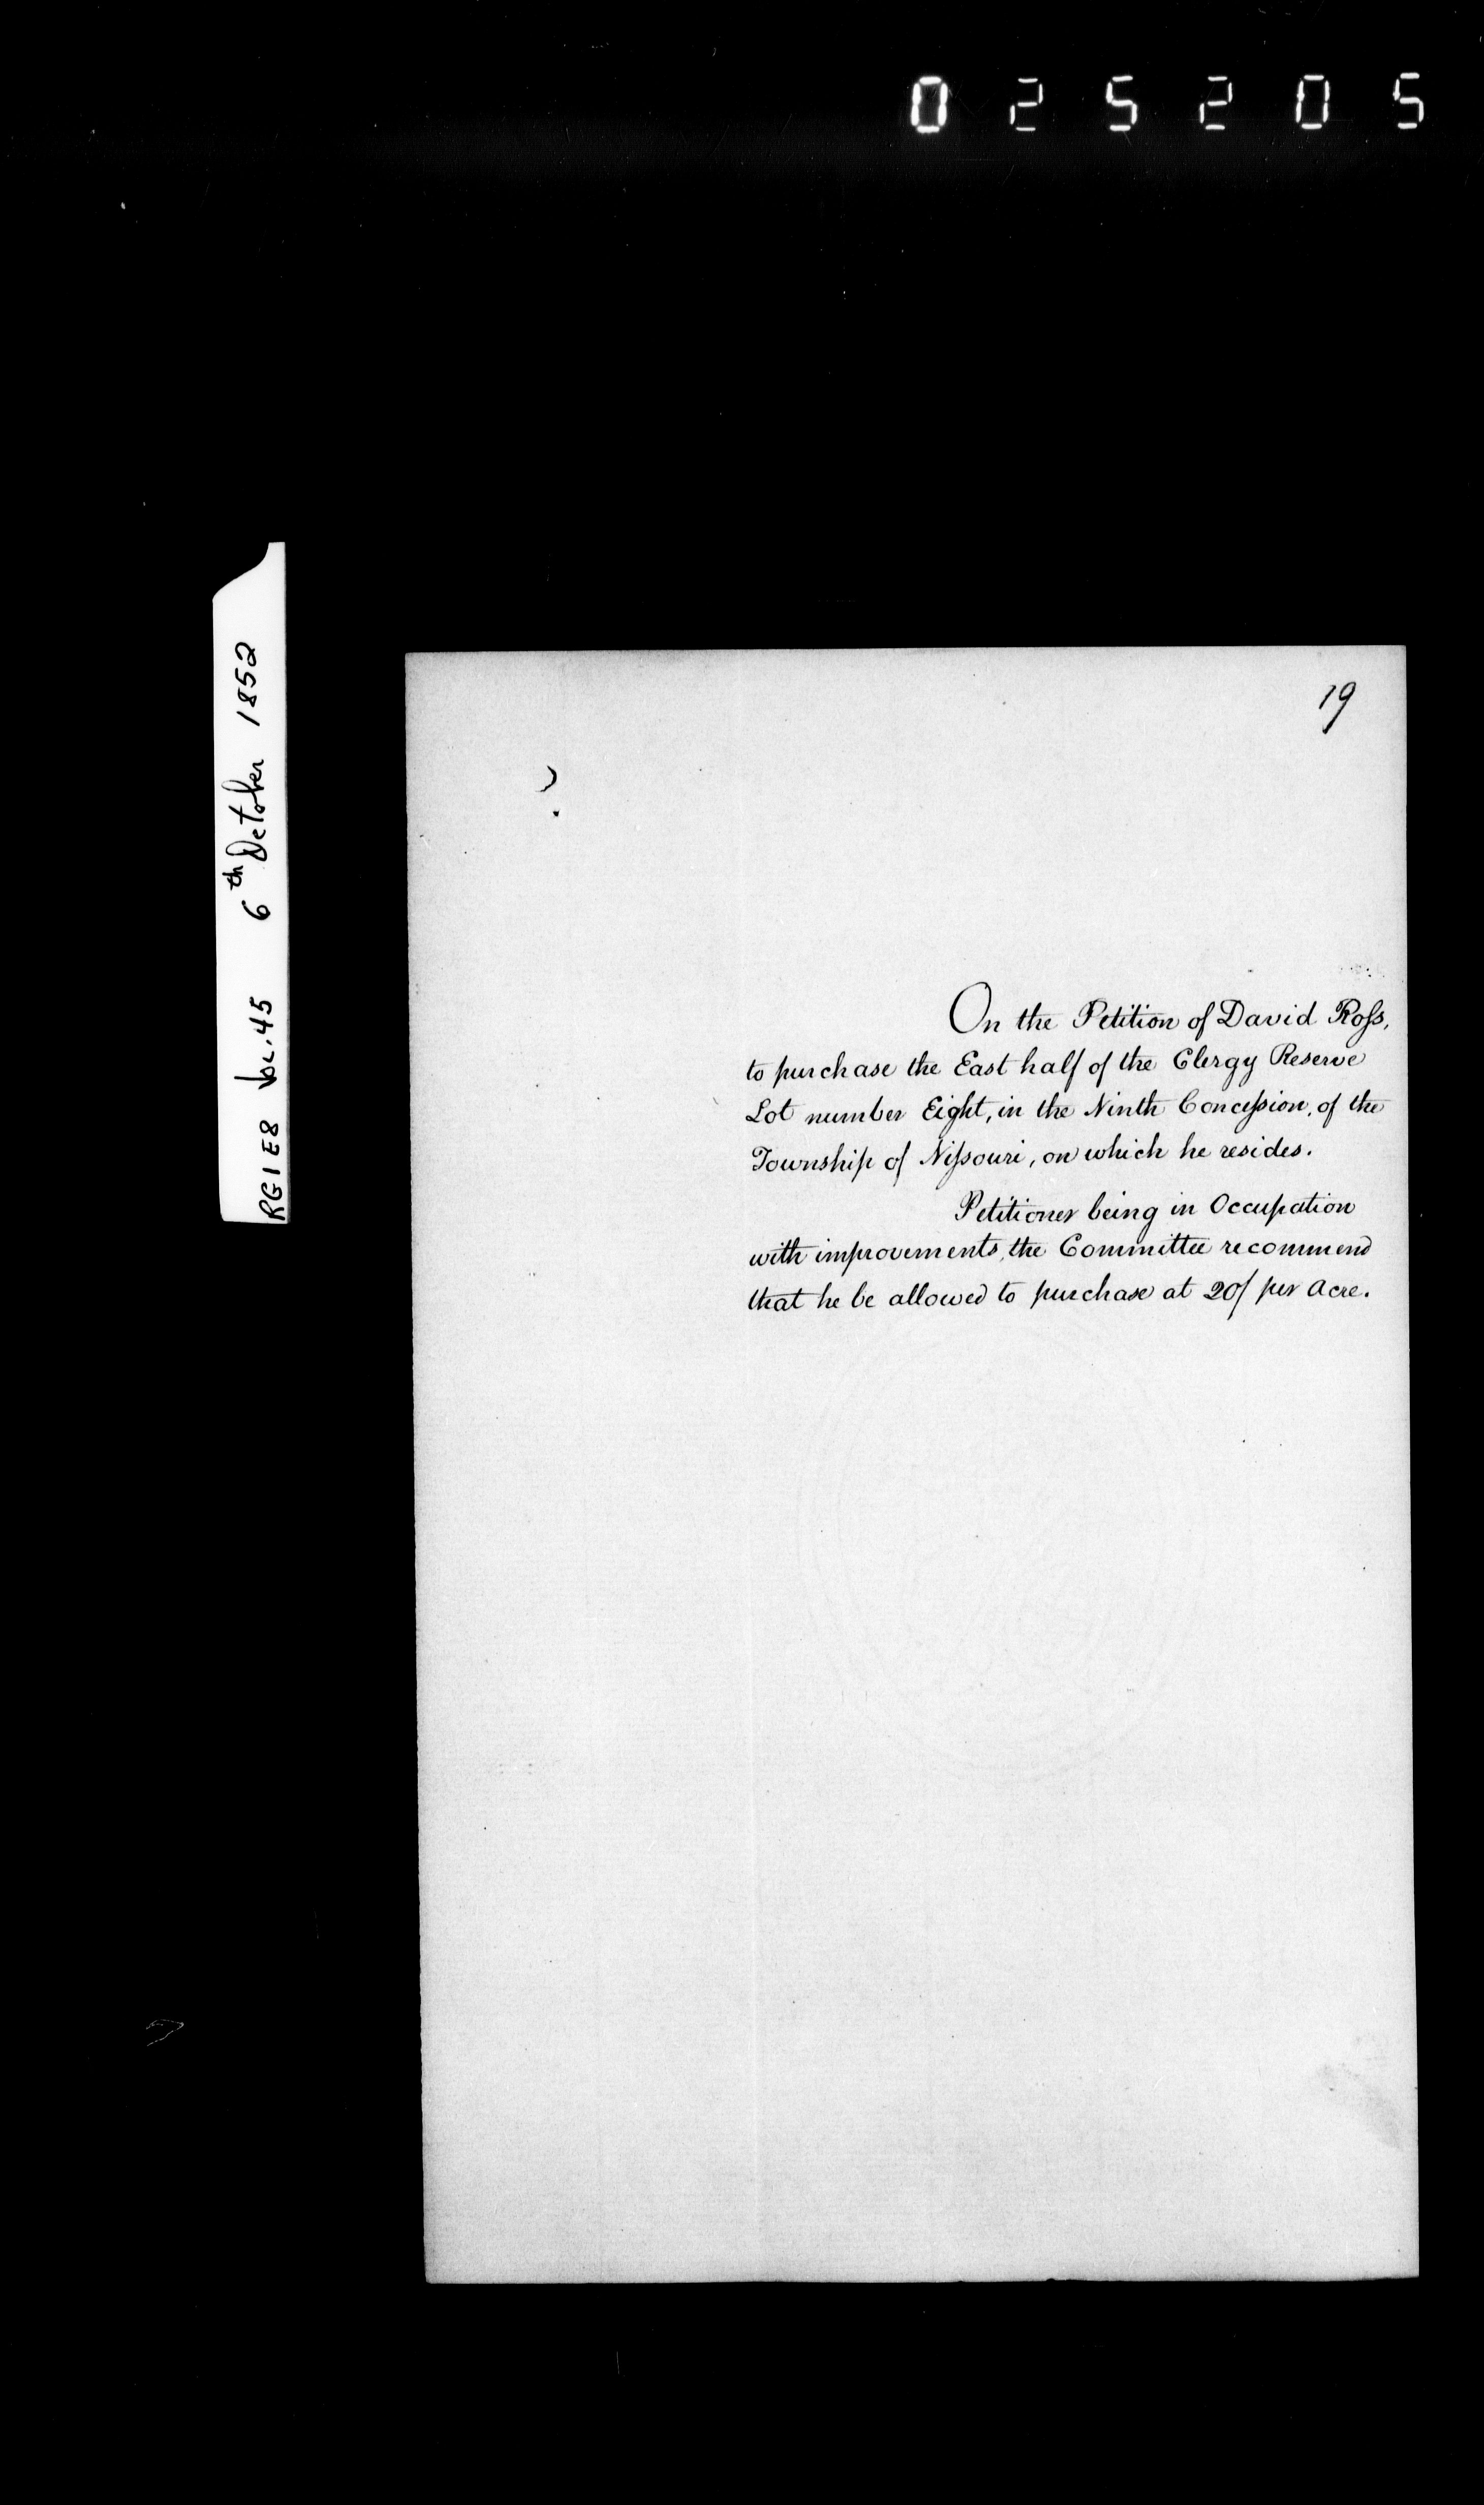 025205
RG1E8 Vol. 45 6th October 1852
19
On the Petition of David Ross,
to purchase the East half of the Clergy Reserve
Lot number Eight, in the Ninth Concession, of the
Township of Nissouri, on which he resides.
Petitioner being in Occupation
with improvements, the Committee recommend
that he be allowed to purchase at 20/ per Acre.